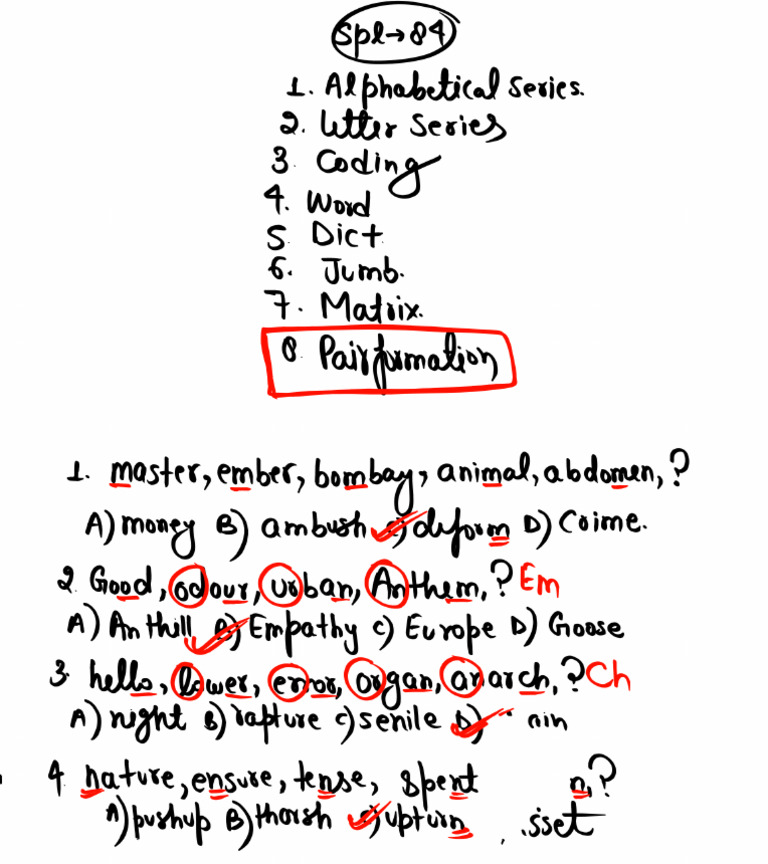 Spl→84
1. Alphabetical Series.
2. letter Series
3. Coding
4. Word
5 Dict
6. Jumb.
7. Matrix.
8. Pair formation
1. master, ember, bombay, animal, abdomen, ?
A) money B) ambush C) deform D) Coime.
2. Good, odour, urban, Anthem, ? Em
A) Anthill B) Empathy C) Europe D) Goose
3. hello, lower, error, organ, anarch, ? Ch
A) night B) rapture C) senile D) nin
4 nature, ensure, tense, spent n, ?
A) pushup B) thorsh C) upturn sset